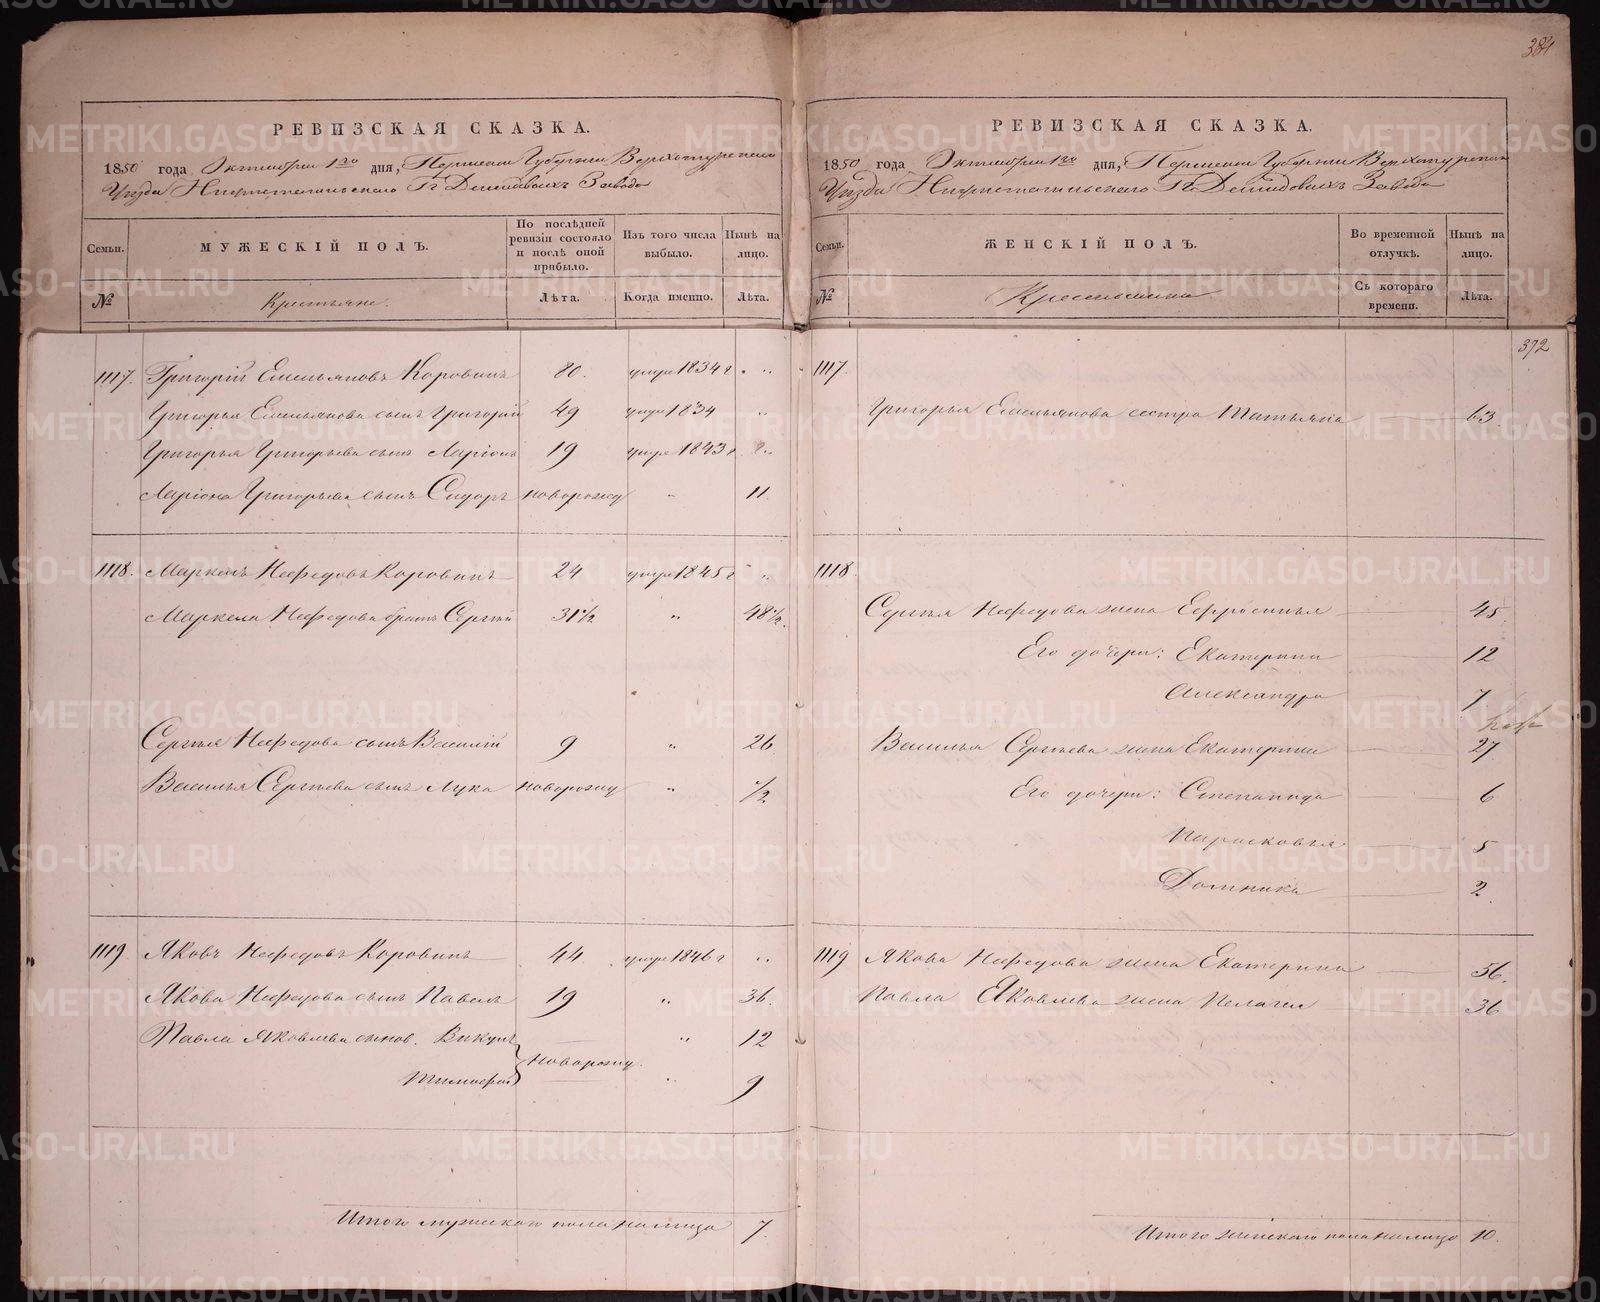 384
РЕВИЗСКАЯ СКАЗКА.
1850 года Октября 1го дня, Пермской Губернии Верхотурскаго
Уезда Нижнетагильскаго Гг. Демидовыхъ Завода
Семьи. МУЖЕСКІЙ ПОЛЪ. По послѣдней ревизіи состояло и послѣ оной прибыло. Изъ того числа выбыло. Нынѣ на лицо.
№ Крестьяне. Лѣта. Когда именно. Лѣта.
1117. Григорій Емельяновъ Коровинъ 80. умре 1834 г „
Григорья Емельянова сынъ Григорій 49 умре 1834 „
Григорья Григорьева сынъ Ларіонъ 19 умре 1843 г „
Ларіона Григорьева сынъ Сидоръ новорожд „ 11
1118. Маркелъ Нефедовъ Коровинъ 24 умре 1845 г „
Маркела Нефедова братъ Сергѣй 31 1/2 „ 48 1/2
Сергѣя Нефедова сынъ Василій 9 „ 26
Василья Сергѣева сынъ Лука новорожд „ 1/2
1119 Яковъ Нефедовъ Коровинъ 44 умре 1846 г „
Якова Нефедова сынъ Павелъ 19 „ 36.
Павла Яковлева сынов. Викулъ „ 12
новорожд.
Тимофей „ 9
Итого мужескаго пола налицо 7.
РЕВИЗСКАЯ СКАЗКА.
1850 года Октября 1го дня, Пермской Губернии Верхотурскаго
Уезда Нижнетагильскаго Гг. Демидовыхъ Завода
Семьи. ЖЕНСКІЙ ПОЛЪ. Во временной отлучкѣ. Нынѣ на лицо.
№ Крестьянки Съ котораго времени. Лѣта.
372
1117.
Григорья Емельянова сестра Татьяна 63
1118.
Сергѣя Нефедова жена Ефросинья 45
Его дочери: Екатерина 12
Александра 7
Василья Сергѣева жена Екатерина 27
Его дочери: Степанида 6
Парасковья 5
Домника 2.
1119 Якова Нефедова жена Екатерина 56.
Павла Яковлева жена Пелагея 36
Итого женскаго пола налицо 10.
METRIKI.GASO-URAL.RU